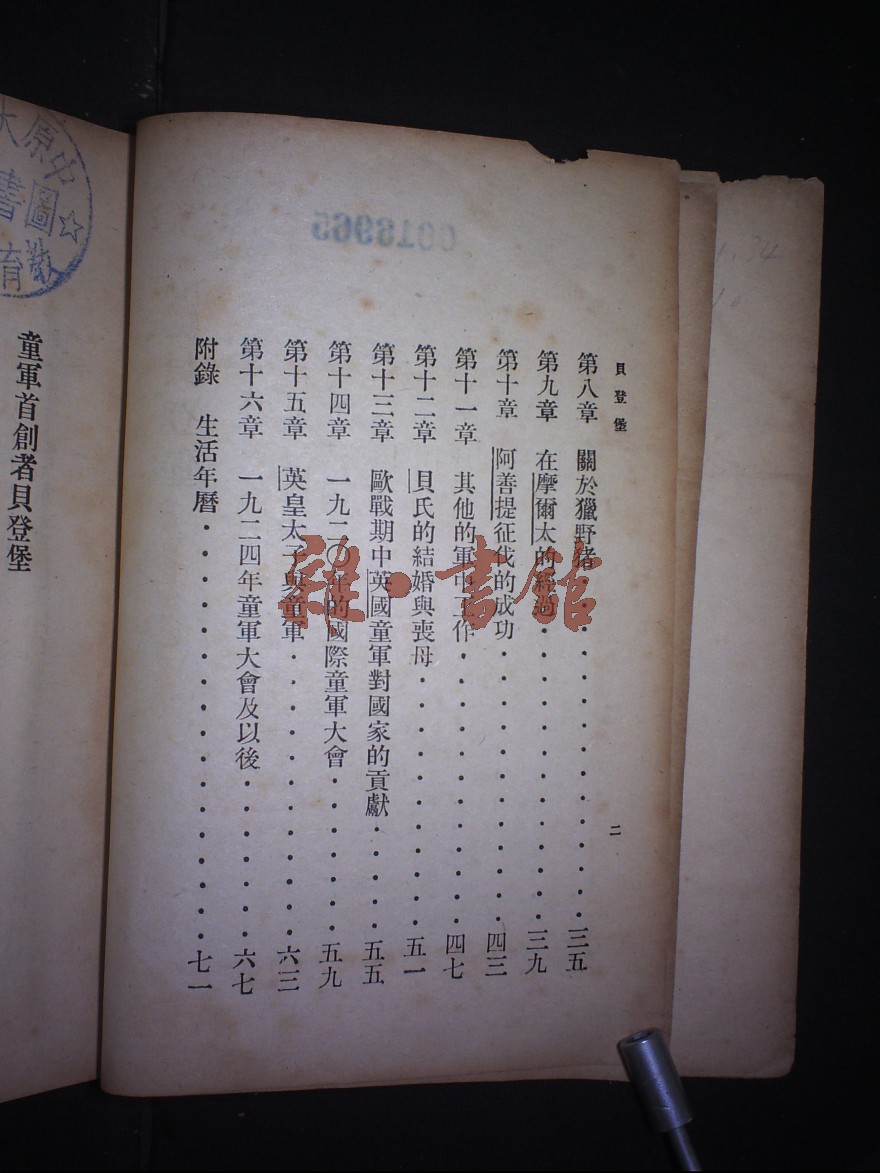 貝登堡
二
第八章 關於獵野猪 三五
第九章 在摩爾太的經過 三九
第十章 阿善提征伐的成功 四三
第十一章 其他的軍中工作 四七
第十二章 貝氏的結婚與喪母 五一
第十三章 歐戰期中英國童軍對國家的貢獻 五五
第十四章 一九二〇年的國際童軍大會 五九
第十五章 英皇太子與童軍 六三
第十六章 一九二四年童軍大會及以後 六七
附錄 生活年曆 七一
童軍首創者貝登堡
0016965
雜·書館